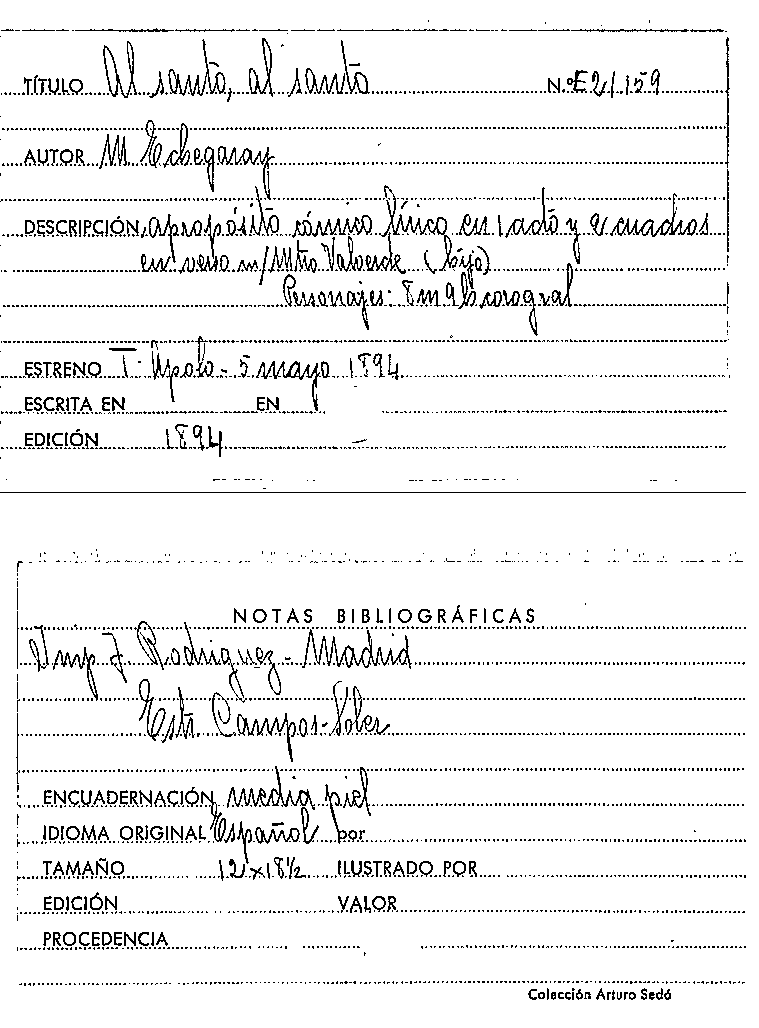 TÍTULO Al santo, al santo N.º E2/159
AUTOR M Echegaray
DESCRIPCIÓN, apropósito cómico lírico en 1 acto y 2 cuadros
en verso m/ Mtro Valverde (hijo)
Personajes: 8 m 9 h coro gral
ESTRENO T. Apolo - 5 mayo 1894
ESCRITA EN EN
EDICIÓN 1894 —
NOTAS BIBLIOGRÁFICAS
Imp J Rodriguez - Madrid
Estr. Campos - Soler
ENCUADERNACIÓN media piel
IDIOMA ORIGINAL Español por
TAMAÑO 12 x 18 1/2 ILUSTRADO POR
EDICIÓN VALOR
PROCEDENCIA
Colección Arturo Sedó